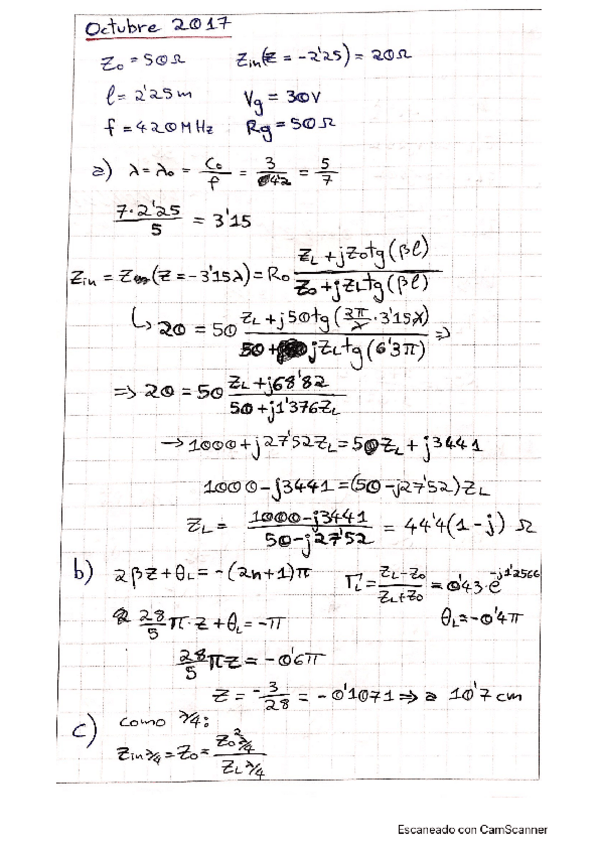 Octubre 2017
Z₀ = 50Ω    Zin(z = -2'25) = 20Ω
l = 2'25m    Vg = 30V
f = 420MHz    Rg = 50Ω
a) λ = λ₀ = C₀/f = 3/042 = 5/7
7·2'25/5 = 3'15
Zin = (z = -3'15λ) = R₀ (ZL + jZ₀tg(βl))/(Z₀ + jZLtg(βl))
↳ 20 = 50 (ZL + j50tg(2π/λ · 3'15λ))/(50 + jZLtg(6'3π)) ⇒
⇒ 20 = 50 (ZL + j68'82)/(50 + j1'376ZL)
→ 1000 + j27'52ZL = 50ZL + j3441
1000 - j3441 = (50 - j27'52)ZL
ZL = (1000 - j3441)/(50 - j27'52) = 44'4(1-j) Ω
b) 2βz + θL = -(2n+1)π    ΓL = (ZL - Z₀)/(ZL + Z₀) = 0'43·e^(-j1'2566)
28/5 π·z + θL = -π    θL = -0'4π
28/5 πz = -0'6π
z = -3/28 = -0'1071 ⇒ a 10'7 cm
c) como λ/4:
Zin λ/4 = Z₀ = Z₀² λ/4 / ZL λ/4
Escaneado con CamScanner